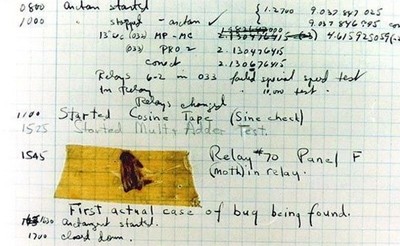 0800 Antan started
1000 " stopped - antan ✓ { 1.2700 9.037 847 025
9.037 846 795 correct
13"uc (032) MP - MC 2.130476415 4.615925059(-2)
(033) PRO 2 2.130476415
correct 2.130676415
Relays 6-2 in 033 failed special speed test
in relay " 11.000 test.
Relays changed
1100 Started Cosine Tape (Sine check)
1525 Started Mult+Adder Test.
1545 Relay #70 Panel F
(moth) in relay.
First actual case of bug being found.
antangent started.
1700 closed down.